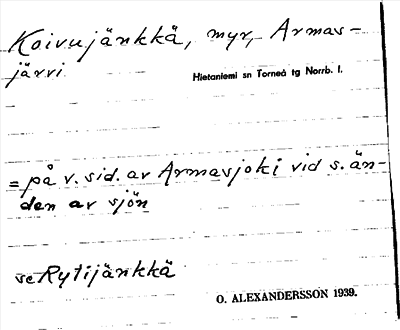 Koivujänkkä, myr, Armas-
järvi.
Hietaniemi sn Torneå tg Norrb. l.
= på v. sid. av Armasjoki vid s. än-
den av sjön
se Rytijänkkä
O. ALEXANDERSSON 1939.